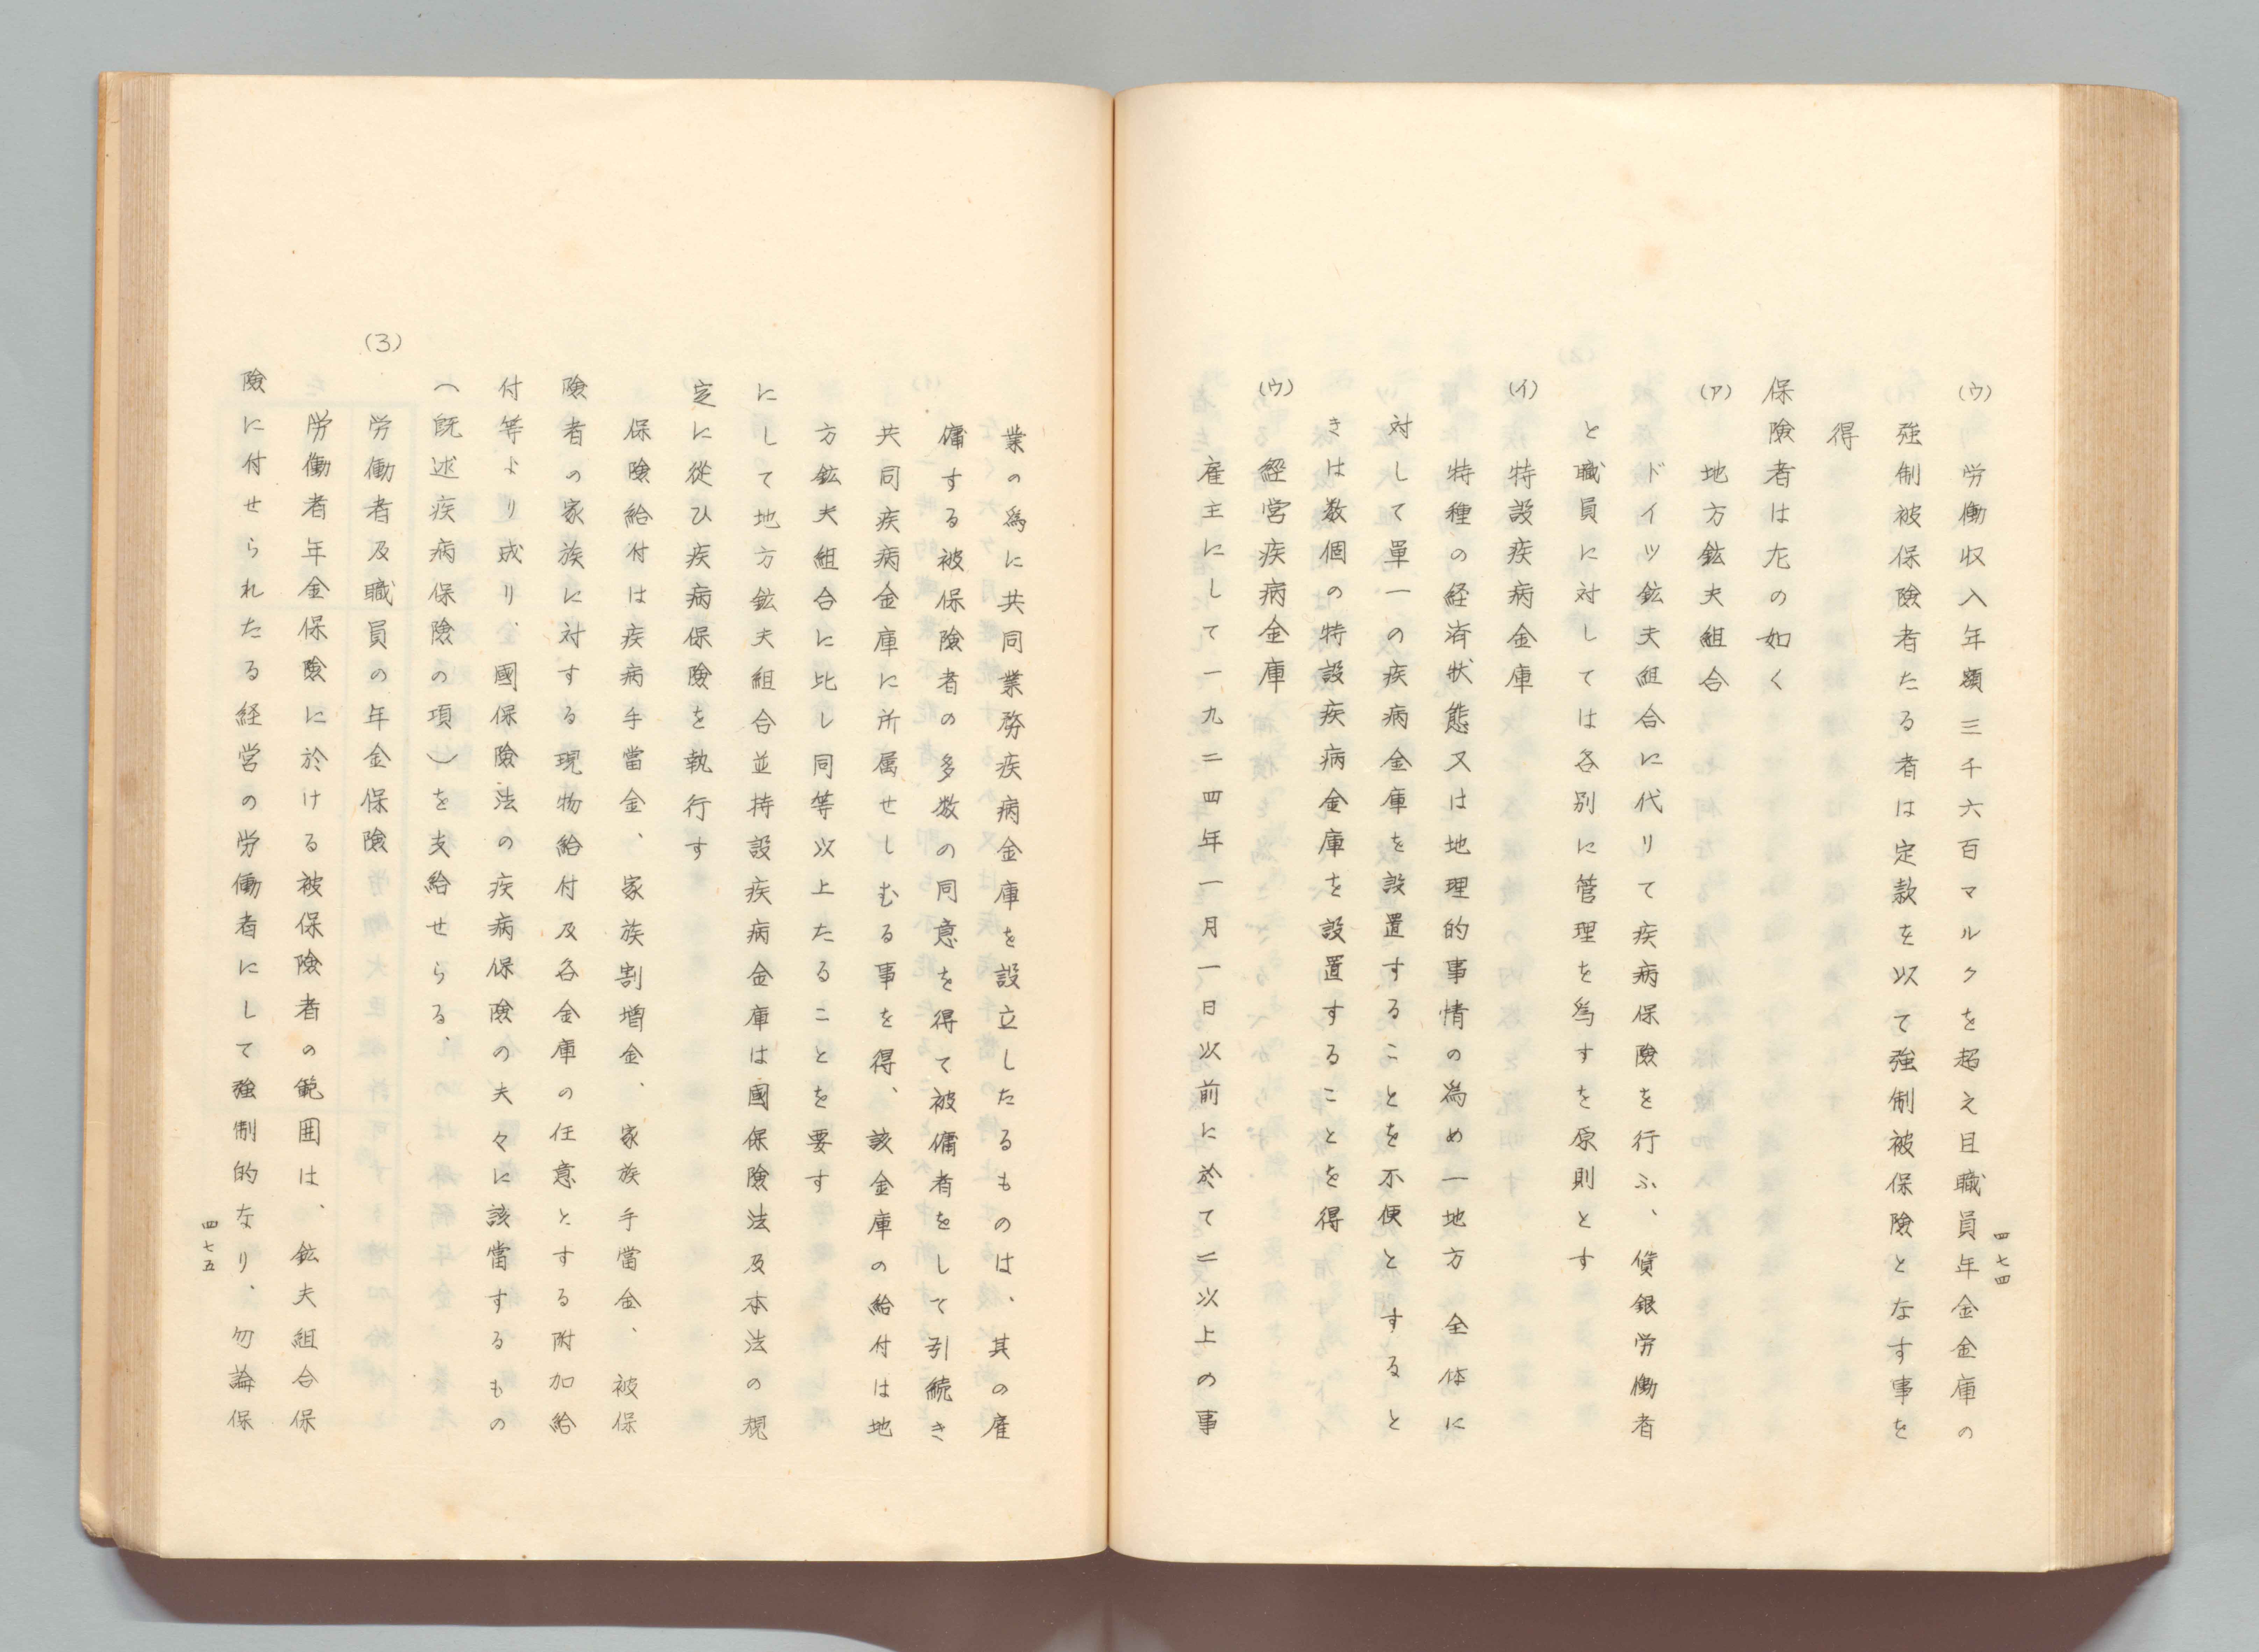 (ウ) 労働収入年額三千六百マルクを超え且職員年金金庫の
強制被保険者たる者は定款を以て強制被保険となす事を
得
保険者は左の如く
(ア) 地方鉱夫組合
ドイツ鉱夫組合に代りて疾病保険を行ふ、賃銀労働者
と職員に対しては各別に管理を為すを原則とす
(イ) 特設疾病金庫
特種の経済状態又は地理的事情の為め一地方全体に
対して単一の疾病金庫を設置することを不便とすると
きは数個の特設疾病金庫を設置することを得
(ウ) 経営疾病金庫
雇主にして一九二四年一月一日以前に於て二以上の事
四七四
業の為に共同業務疾病金庫を設立したるものは、其の雇
傭する被保険者の多数の同意を得て被傭者をして引続き
共同疾病金庫に所属せしむる事を得、該金庫の給付は地
方鉱夫組合に比し同等以上たることを要す
にして地方鉱夫組合並特設疾病金庫は國保険法及本法の規
定に従ひ疾病保険を執行す
保険給付は疾病手當金、家族割増金、家族手當金、被保
険者の家族に対する現物給付及各金庫の任意とする附加給
付等より成り、國保険法の疾病保険の夫々に該當するもの
（既述疾病保険の項）を支給せらる、
(3) 労働者及職員の年金保険
労働者年金保険に於ける被保険者の範囲は、鉱夫組合保
険に付せられたる経営の労働者にして強制的なり、勿論保
四七五